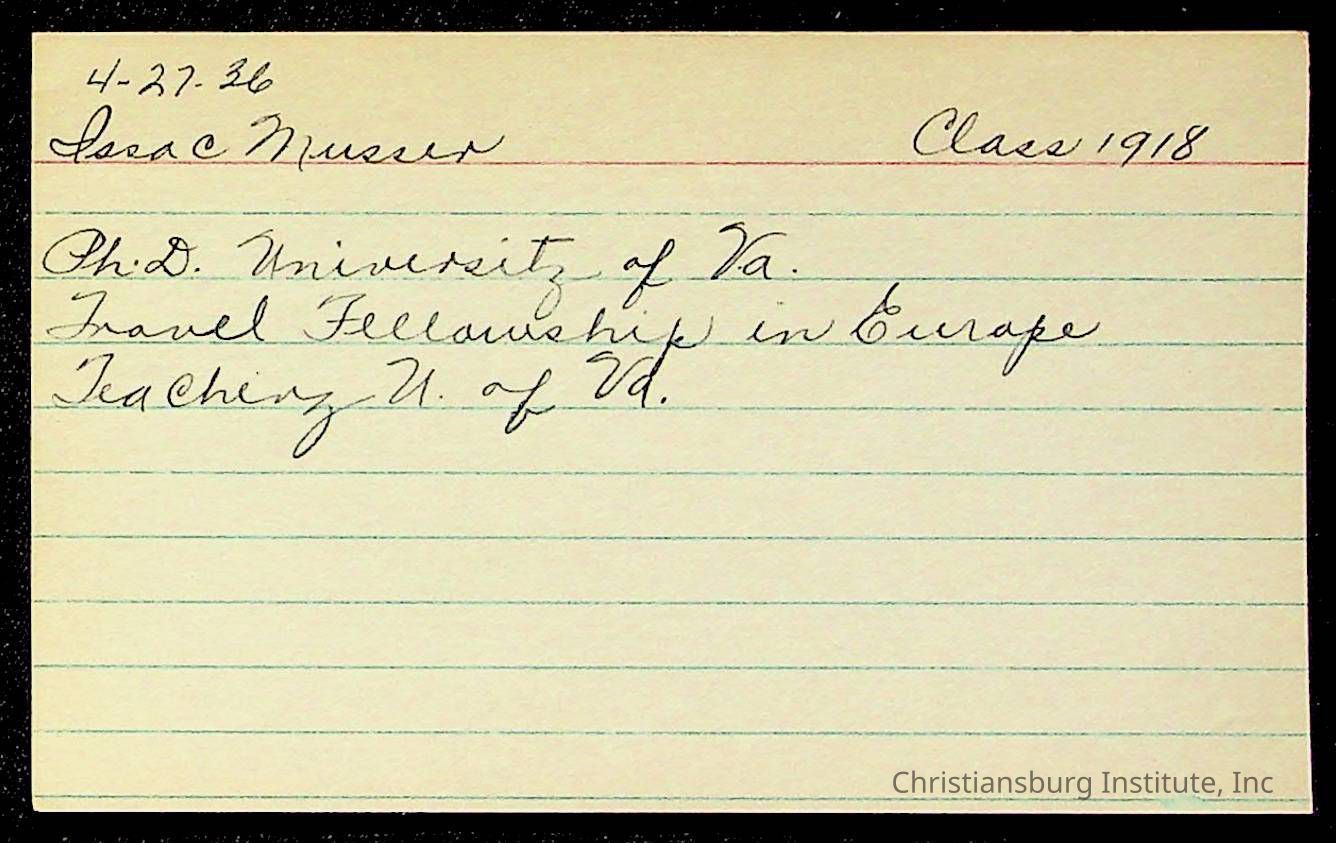 4-27-36
Issac Musser Class 1918
Ph.D. University of Va.
Travel Fellowship in Europe
Teaching U. of Va.
Christiansburg Institute, Inc